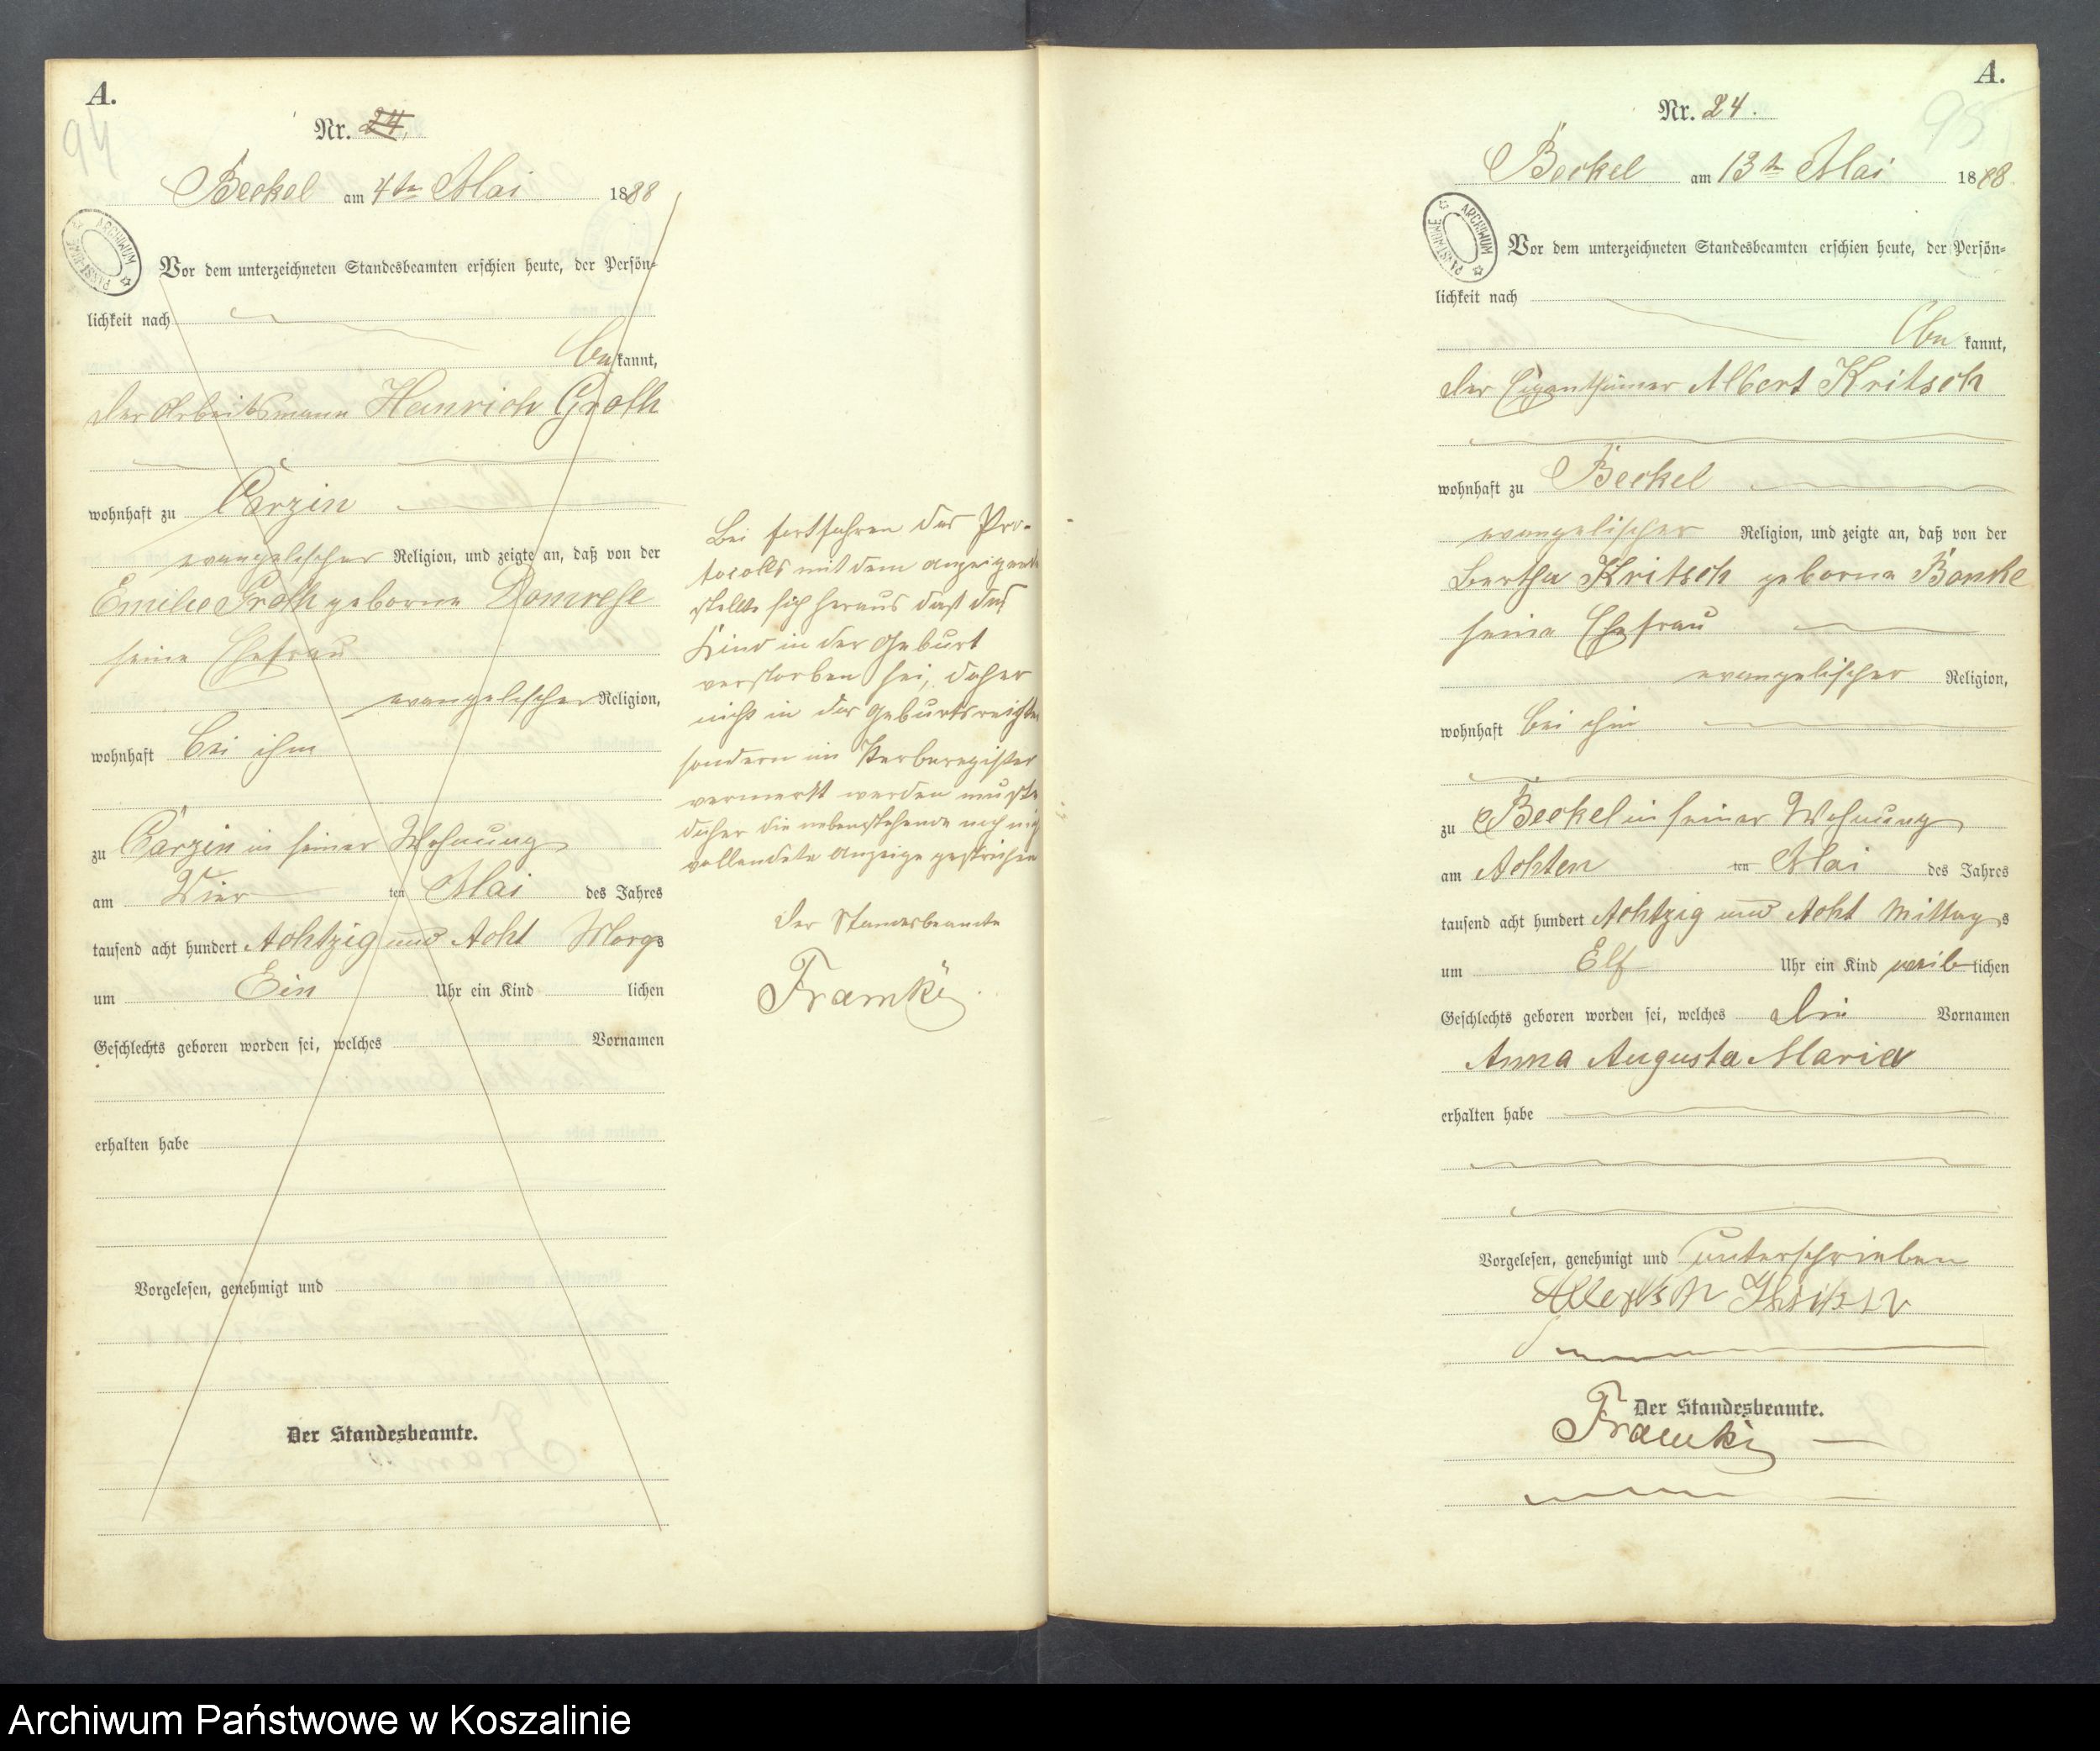 A.
94
Nr. 24.
Beckel am 4ten Mai 1888
ARCHIWUM PAŃSTWOWE
Vor dem unterzeichneten Standesbeamten erschien heute, der Persön-
lichkeit nach
be kannt,
der Arbeitsmann Heinrich Groth
wohnhaft zu Carzin
evangelischer Religion, und zeigte an, daß von der
Emilie Groth geborne Domrese
seine Ehefrau
evangelischer Religion,
wohnhaft bei ihm
zu Carzin in seiner Wohnung
am Vier ten Mai des Jahres
tausend acht hundert Achtzig und Acht Morgs
um Ein Uhr ein Kind lichen
Geschlechts geboren worden sei, welches Vornamen
erhalten habe
Vorgelesen, genehmigt und
Der Standesbeamte.
Bei fortfahren des Pro-
tocolls mit dem
stellte sich heraus daß das
Kind in der Geburt
verstorben sei, daher
nicht in der
sondern im Sterberegister
vermerkt werden mußte
daher die nebenstehende noch
vollendete Anzeige gestrichen
Der Standesbeamte
A.
95
Nr. 24.
Beckel am 13ten Mai 1888
ARCHIWUM PAŃSTWOWE
Vor dem unterzeichneten Standesbeamten erschien heute, der Persön-
lichkeit nach
be kannt,
der Eigenthümer Albert Kritsch
wohnhaft zu Beckel
evangelischer Religion, und zeigte an, daß von der
Bertha Kritsch geborne
seine Ehefrau
evangelischer Religion,
wohnhaft bei ihm
zu Beckel in seiner Wohnung
am Achten ten Mai des Jahres
tausend acht hundert Achtzig und Acht Mittags
um Elf Uhr ein Kind weiblichen
Geschlechts geboren worden sei, welches die Vornamen
Anna Augusta Maria
erhalten habe
Vorgelesen, genehmigt und unterschrieben
Der Standesbeamte.
Archiwum Państwowe w Koszalinie